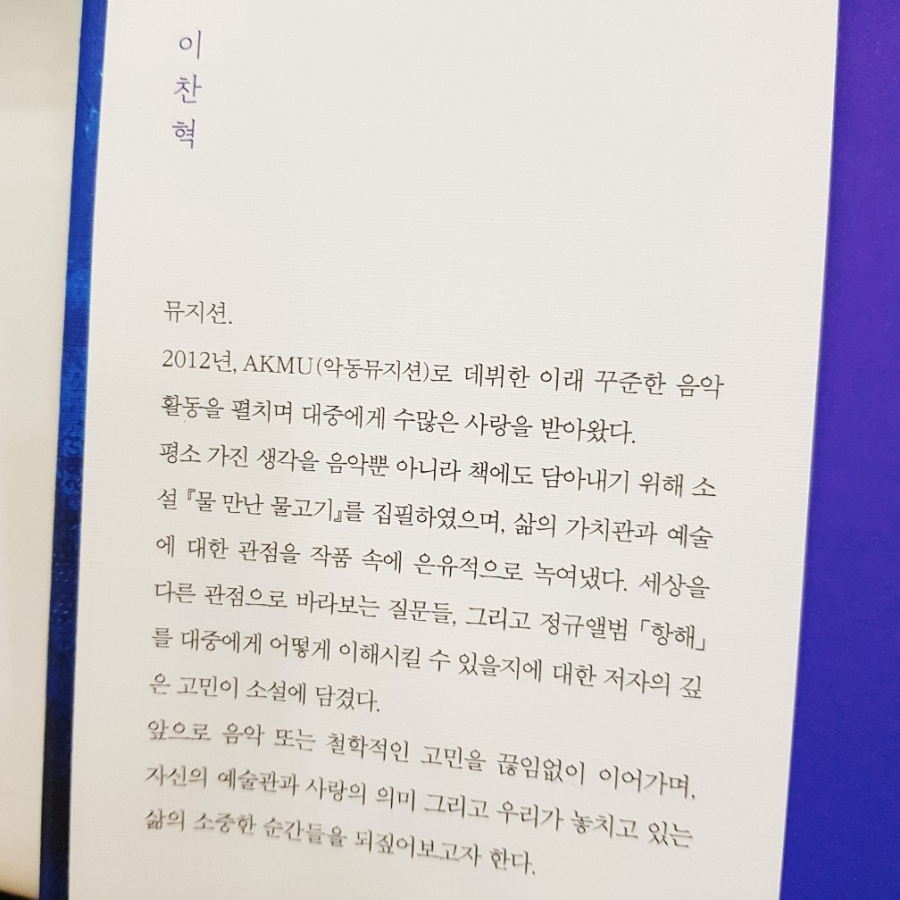 이찬혁
뮤지션.
2012년, AKMU(악동뮤지션)로 데뷔한 이래 꾸준한 음악
활동을 펼치며 대중에게 수많은 사랑을 받아왔다.
평소 가진 생각을 음악뿐 아니라 책에도 담아내기 위해 소
설 『물 만난 물고기』를 집필하였으며, 삶의 가치관과 예술
에 대한 관점을 작품 속에 은유적으로 녹여냈다. 세상을
다른 관점으로 바라보는 질문들, 그리고 정규앨범 「항해」
를 대중에게 어떻게 이해시킬 수 있을지에 대한 저자의 깊
은 고민이 소설에 담겼다.
앞으로 음악 또는 철학적인 고민을 끊임없이 이어가며,
자신의 예술관과 사랑의 의미 그리고 우리가 놓치고 있는
삶의 소중한 순간들을 되짚어보고자 한다.